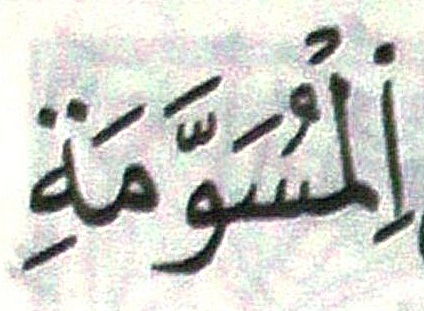 اِ۬لْمُسَوَّمَةِ